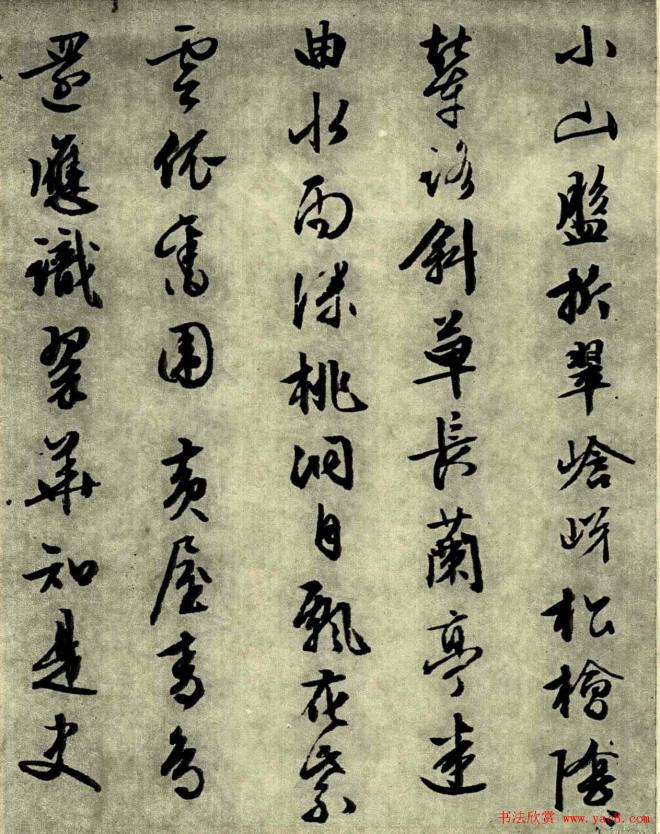 小山盤折翠㟏岈松檜陰
輦路斜草長蘭亭迷
曲水雨深桃洞月飄花紫
雲依舊團黃屋青鳥
還應識翠華知是史
书法欣赏 www.yac8.com